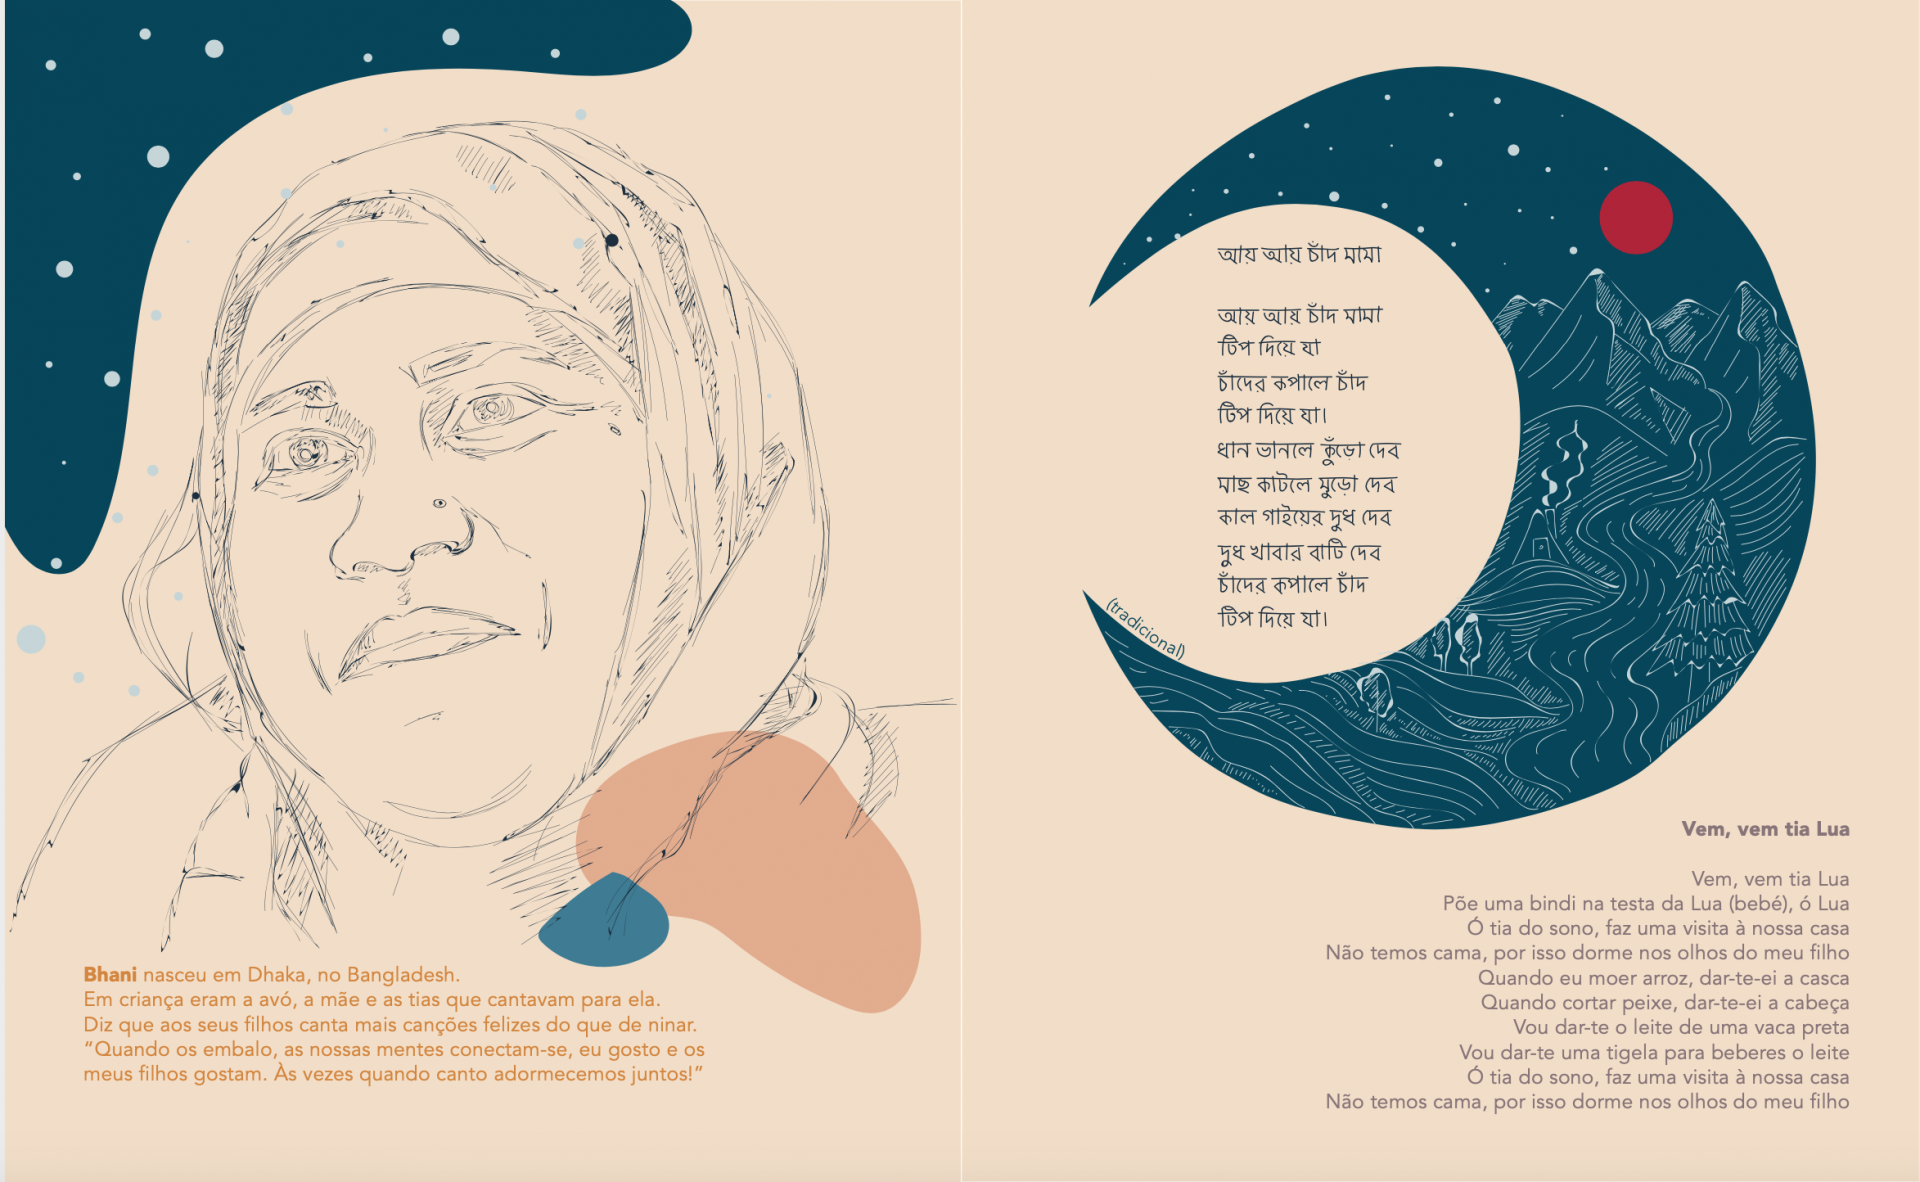 Bhani nasceu em Dhaka, no Bangladesh.
Em criança eram a avó, a mãe e as tias que cantavam para ela.
Diz que aos seus filhos canta mais canções felizes do que de ninar.
“Quando os embalo, as nossas mentes conectam-se, eu gosto e os
meus filhos gostam. Às vezes quando canto adormecemos juntos!”
আয় আয় চাঁদ মামা
আয় আয় চাঁদ মামা
টিপ দিয়ে যা
চাঁদের কপালে চাঁদ
টিপ দিয়ে যা।
ধান ভানলে কুঁড়ো দেব
মাছ কাটলে মুড়ো দেব
কাল গাইয়ের দুধ দেব
দুধ খাবার বাটি দেব
চাঁদের কপালে চাঁদ
টিপ দিয়ে যা।
(tradicional)
Vem, vem tia Lua
Vem, vem tia Lua
Põe uma bindi na testa da Lua (bebé), ó Lua
Ó tia do sono, faz uma visita à nossa casa
Não temos cama, por isso dorme nos olhos do meu filho
Quando eu moer arroz, dar-te-ei a casca
Quando cortar peixe, dar-te-ei a cabeça
Vou dar-te o leite de uma vaca preta
Vou dar-te uma tigela para beberes o leite
Ó tia do sono, faz uma visita à nossa casa
Não temos cama, por isso dorme nos olhos do meu filho